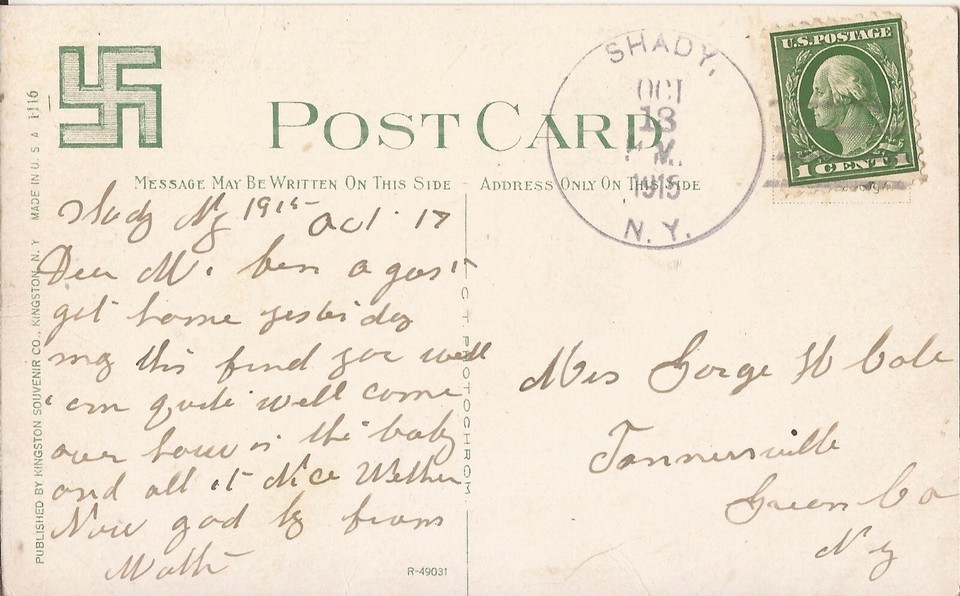 POST CARD
MESSAGE MAY BE WRITTEN ON THIS SIDE
ADDRESS ONLY ON THIS SIDE
SHADY,
OCT
13
P M.
1915
N. Y.
U.S. POSTAGE
1 CENT 1
Shady Ny 1915 Oct 17
Dear
got home yesterday
may this find you well
i am quite well come
over how is the baby
and all it Nice Wether
Now god by from
Mrs Gorge W Cole
Tannersville
Green Co
N y
PUBLISHED BY KINGSTON SOUVENIR CO., KINGSTON, N. Y. MADE IN U. S. A 1116
C. T. PHOTOCHROM
R-49031